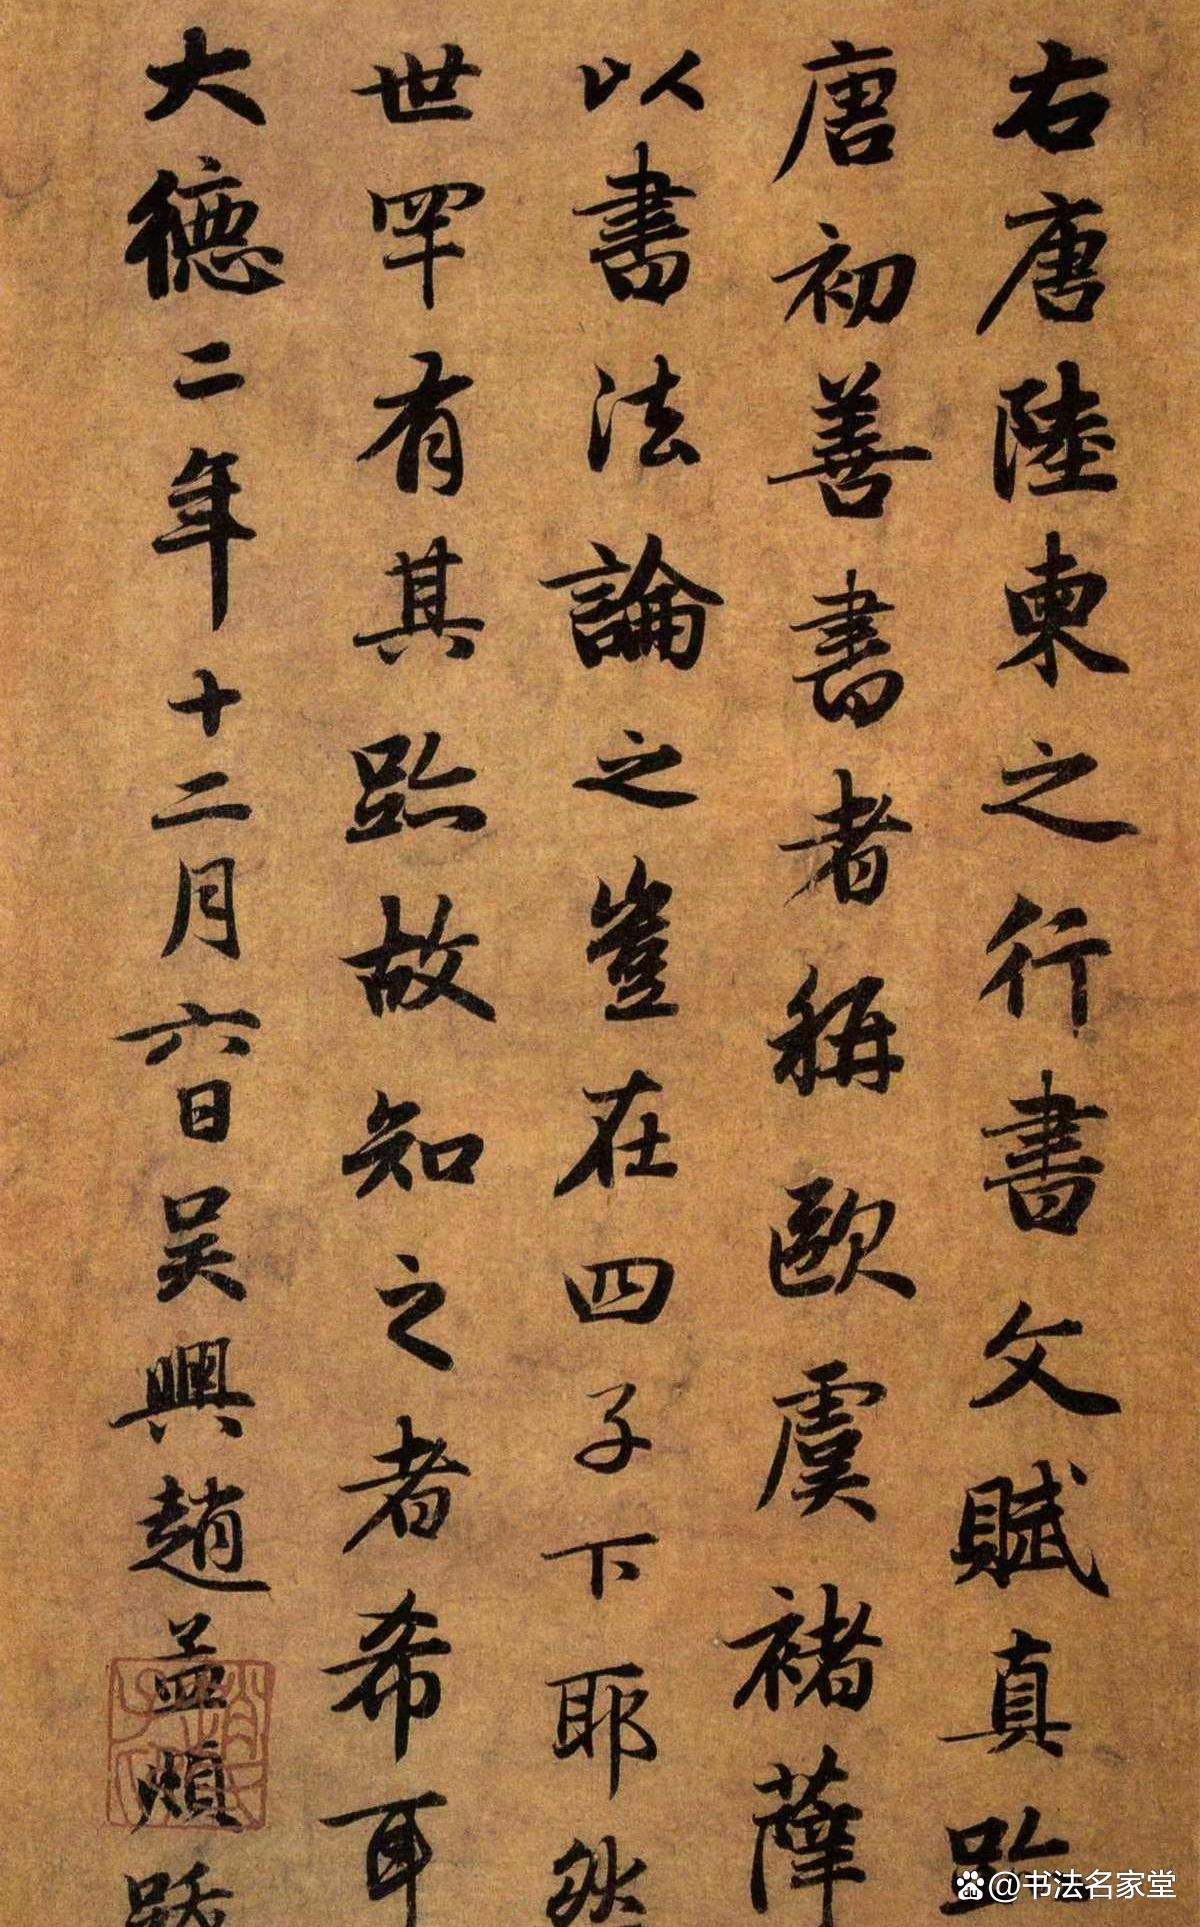 右唐陸柬之行書文賦真跡
唐初善書者稱歐虞褚薛
以書法論之豈在四子下耶然
世罕有其跡故知之者希耳
大德二年十二月六日吳興趙孟頫跋
趙氏子昂
@书法名家堂